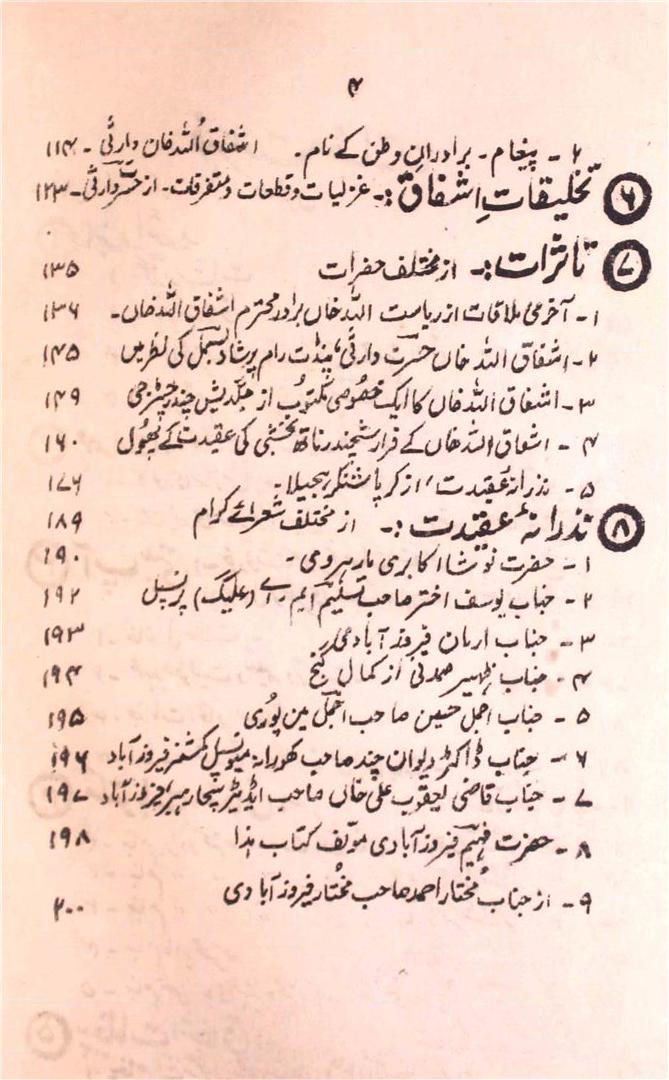 ۴
۶ - پیغام - برادرانِ وطن کے نام - اشفاق اللہ خان وارثی - ۱۱۴
۶ تخلیقاتِ اشفاق :- غزلیات و قطعات و متفرقات - از حسرت وارثی - ۱۲۳
۷ تاثرات :- از مختلف حضرات ۱۳۵
۱ - آخری ملاقات از ریاست اللہ خاں برادر محترم اشفاق اللہ خاں - ۱۳۶
۲ - اشفاق اللہ خاں حسرت وارثی، پنڈت رام پرشاد بسمل کی نظر میں ۱۴۵
۳ - اشفاق اللہ خاں کا ایک خصوصی مکتوب از جگدیش چندر چٹرجی ۱۴۹
۴ - اشفاق اللہ خاں کے فرار شچیندر ناتھ بخشی کی عقیدت کے پھول ۱۶۰
۵ - نذرانۂ عقیدت، از کرپا شنکر ہجیلا - ۱۷۶
۸ نذرانۂ عقیدت :- از مختلف شعرائے کرام ۱۸۹
۱ - حضرت نوشا اکابری مارہرومی - ۱۹۰
۲ - جناب یوسف اختر صاحب تسلیم ایم اے (علیگ) پرنسپل ۱۹۲
۳ - جناب ارمان فیروز آبادی ۱۹۳
۴ - جناب ظہیر صمدنی از کمال گنج ۱۹۴
۵ - جناب اجمل حسین صاحب اجمل مین پوری ۱۹۵
۶ - جناب ڈاکٹر دیوان چند صاحب کھورانہ میونسپل کمشنر فیروز آباد ۱۹۶
۷ - جناب قاضی یعقوب علی خاں صاحب ایڈیٹر فیروز آباد ۱۹۷
۸ - حضرت فہیم فیروز آبادی مولف کتاب ہذا ۱۹۸
۹ - از جناب مختار احمد صاحب مختار فیروز آبادی ۲۰۰